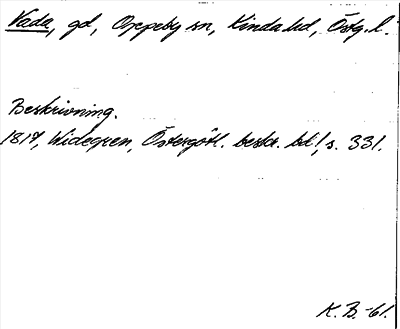 Vada, gd, Oppeby sn, Kinda hd, Östg. l.
Beskrivning.
1817, Widegren, Östergötl. beskr. bd 1, s. 331.
K. B. -61.